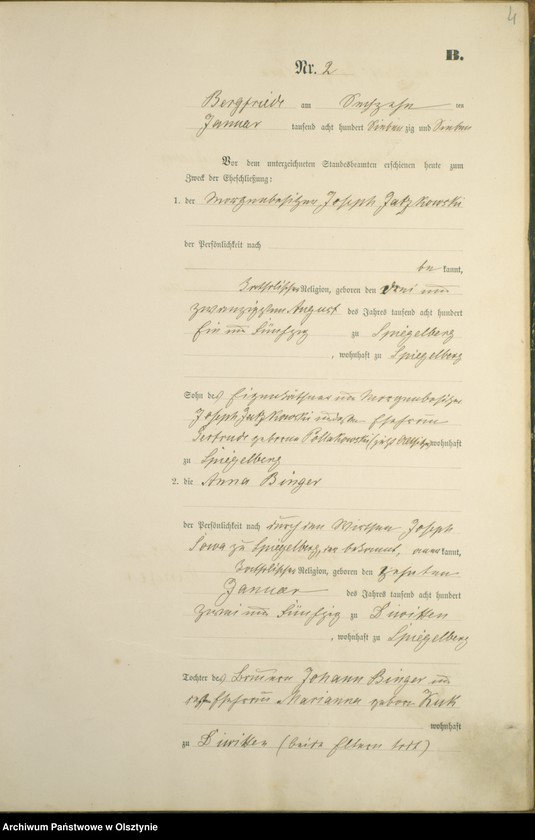 4
B.
Nr. 2
Bergfriede am Sechzehn ten
Januar tausend acht hundert Siebenzig und Sieben
Vor dem unterzeichneten Standesbeamten erschienen heute zum
Zweck der Eheschließung:
1. der Morgenbesitzer Joseph Jatzkowski
der Persönlichkeit nach
be kannt,
katholischer Religion, geboren den drei und
zwanzigsten August des Jahres tausend acht hundert
Ein und fünfzig zu Spiegelberg
, wohnhaft zu Spiegelberg
Sohn des Eigenkäthner und Morgenbesitzer
Joseph Jatzkowski und dessen Ehefrau
Gertrude geborne Pollakowski wohnhaft
zu Spiegelberg
2. die Anna Binger
der Persönlichkeit nach durch den Wirthen Joseph
Sowa zu Spiegelberg, der bekannt, aner kannt,
katholischer Religion, geboren den zehnten
Januar des Jahres tausend acht hundert
zwei und fünfzig zu Diwitten
, wohnhaft zu Spiegelberg
Tochter des Bauern Johann Binger und
Ehefrau Marianna geborn Kuk
wohnhaft
zu Diwitten (beide Eltern todt)
Archiwum Państwowe w Olsztynie